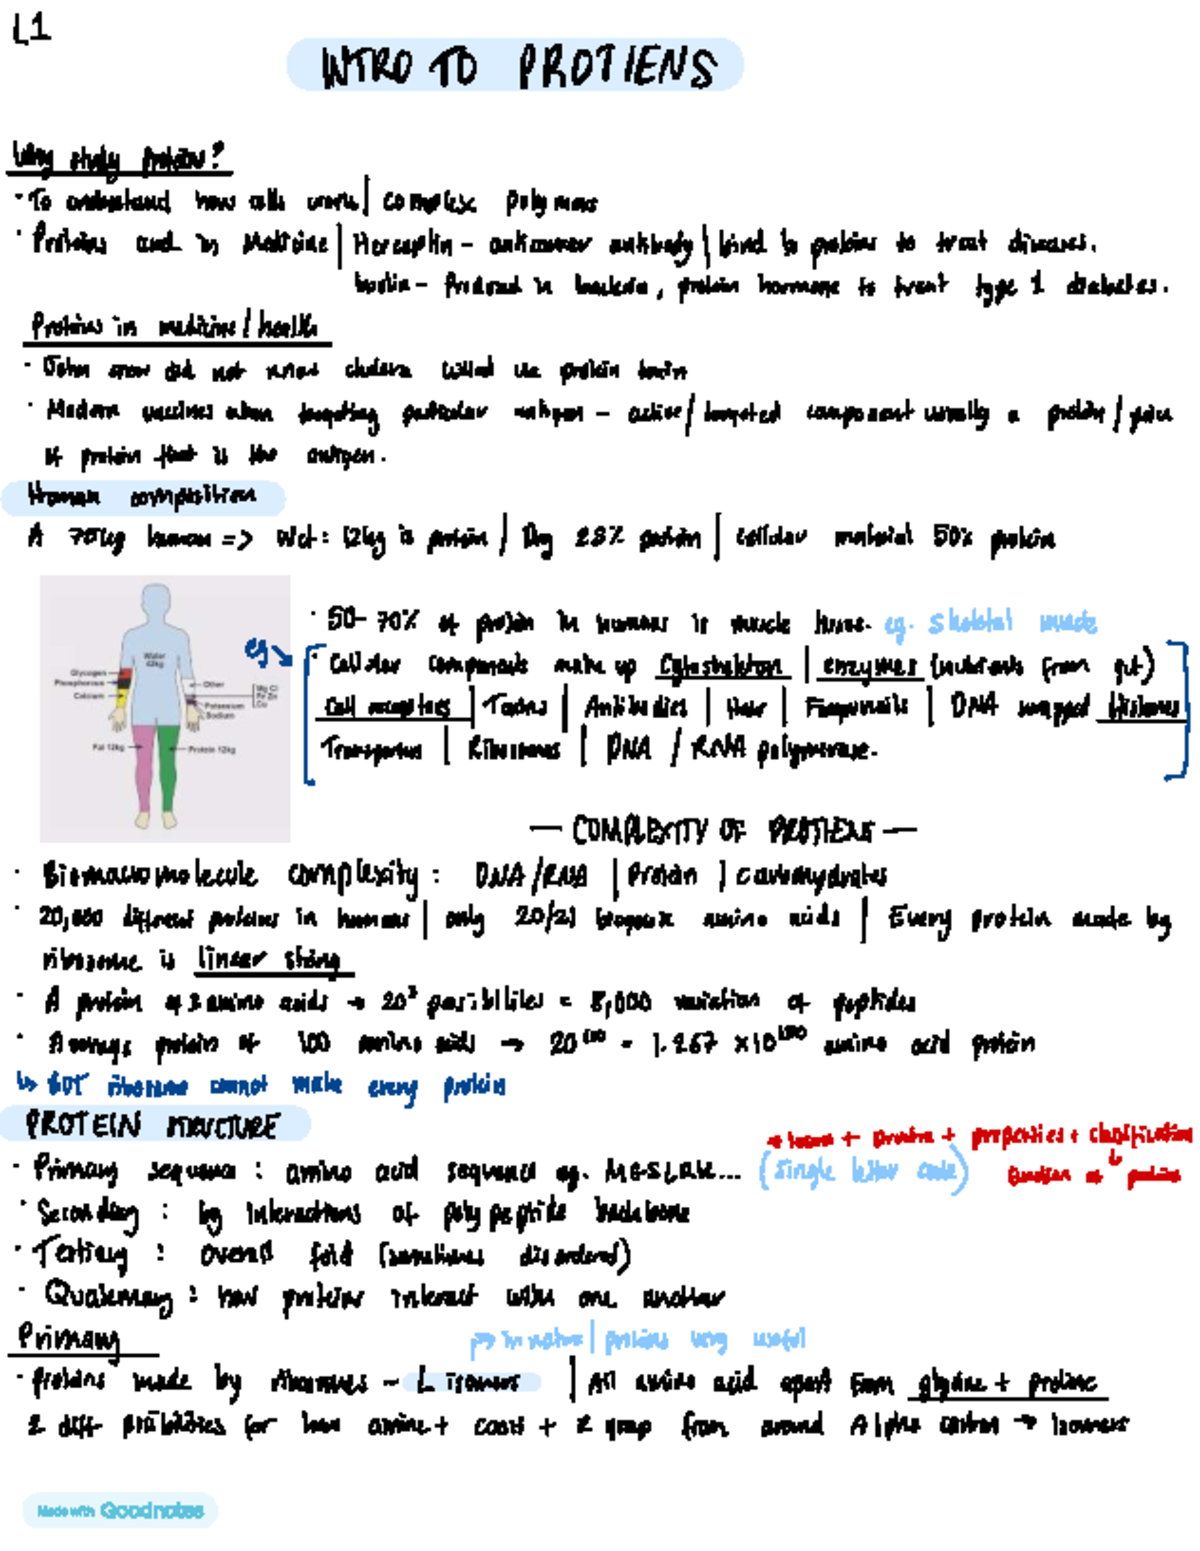 L1
INTRO TO PROTIENS
Why study proteins?
· To understand how cells work | complex polymers
· Proteins and in Medicine | Herceptin - anticancer antibody | bind to proteins to treat diseases.
Insulin - Produced in bacteria, protein hormone to treat type 1 diabetes.
Proteins in medicine / health
· John snow did not know cholera killed via protein toxin
· Modern vaccines when targeting particular antigen - active / targeted component usually a protein / piece
of protein that is the antigen.
Human composition
A 70kg human => Wet: 12kg is protein | Dry 28% protein | cellular material 50% protein
· 50-70% of protein in humans is muscle tissue. eg. skeletal muscle
eg
· Cellular components make up Cytoskeleton | enzymes (nutrients from gut)
Cell receptors | Toxins | Antibodies | Hair | Fingernails | DNA wrapped Histones
Transporters | Ribosomes | DNA / RNA polymerase.
Water
42kg
Glycogen
Phosphorous
Calcium
Other
Mg Cl
Fe Zn
Cu
Potassium
Sodium
Fat 12kg
Protein 12kg
— COMPLEXITY OF PROTIENS —
· Biomacromolecule complexity: DNA/RNA | Protein | carbohydrates
· 20,000 different proteins in humans | only 20/21 amino acids | Every protein made by
ribosome is linear string
· A protein of 3 amino acids → 20³ possibilities = 8,000 variation of peptides
· Average protein of 100 amino acids → 20¹⁰⁰ = 1.267 x10¹³⁰ amino acid protein
↳ BUT ribosome cannot make every protein
PROTEIN STRUCTURE
→ learn + + properties + classification
function of proteins
· Primary sequence: amino acid sequence eg. (single letter code)
· Secondary: by interactions of polypeptide backbone
· Tertiary: overall fold (sometimes disordered)
· Quaternary: how proteins interact with one another
Primary
in nature | proteins very useful
· Proteins made by ribosomes - L isomers | All amino acid apart from glycine + proline
2 diff for how amine + COOH + R group from around Alpha carbon → Isomers
Made with Goodnotes